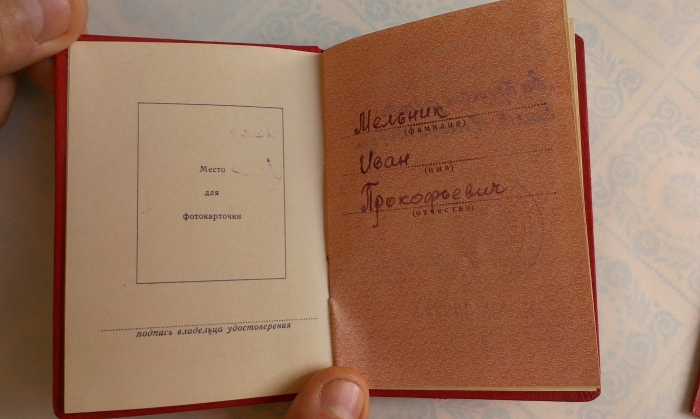 Место
для
фотокарточки
подпись владельца удостоверения
Мельник
(фамилия)
Иван
(имя)
Прокофьевич
(отчество)